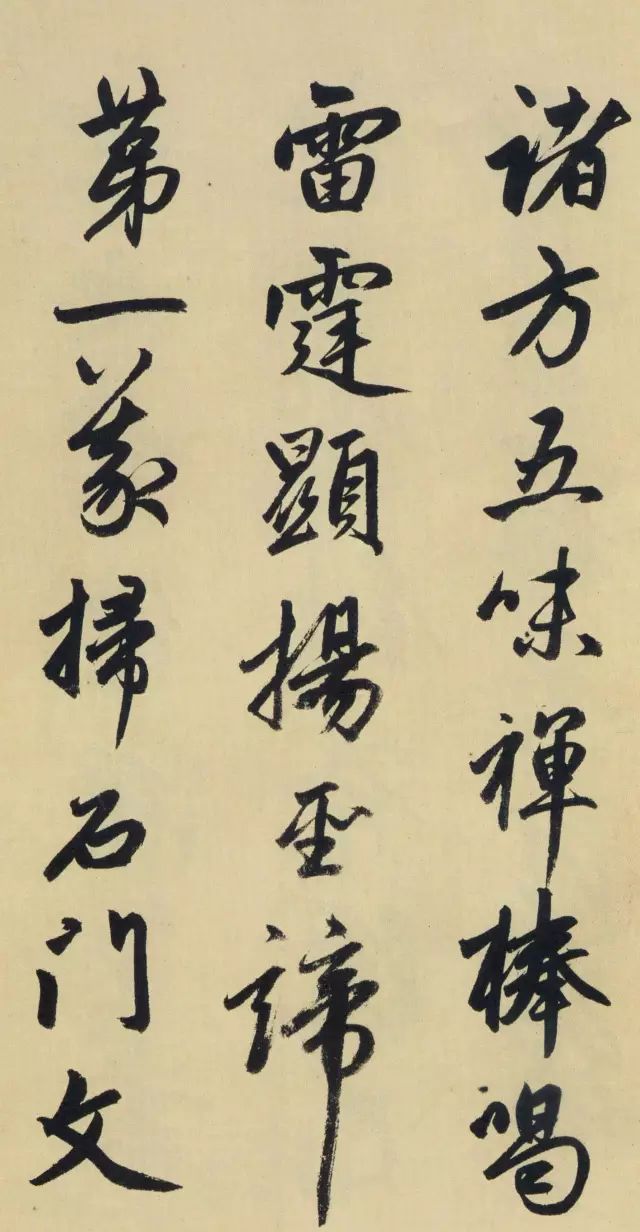 诸方五味禅棒喝
雷霆顯揚聖諦
第一義掃石门文